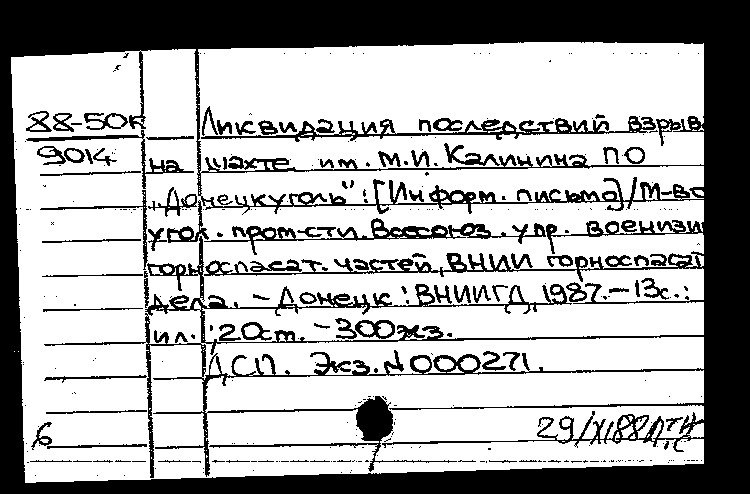 88-50к Ликвидация последствий взрыва
9014 на шахте им. М.И. Калинина ПО
„Донецкуголь": [Информ. письмо]/М-во
угол. пром-сти. Всесоюз. упр. военизи
горноспасат. частей, ВНИИ горноспасат
дела. - Донецк: ВНИИГД, 1987. - 13с.:
ил.; 20 ст. - 300 экз.
ДСП. Экз. N 000271.
6 29/XI88